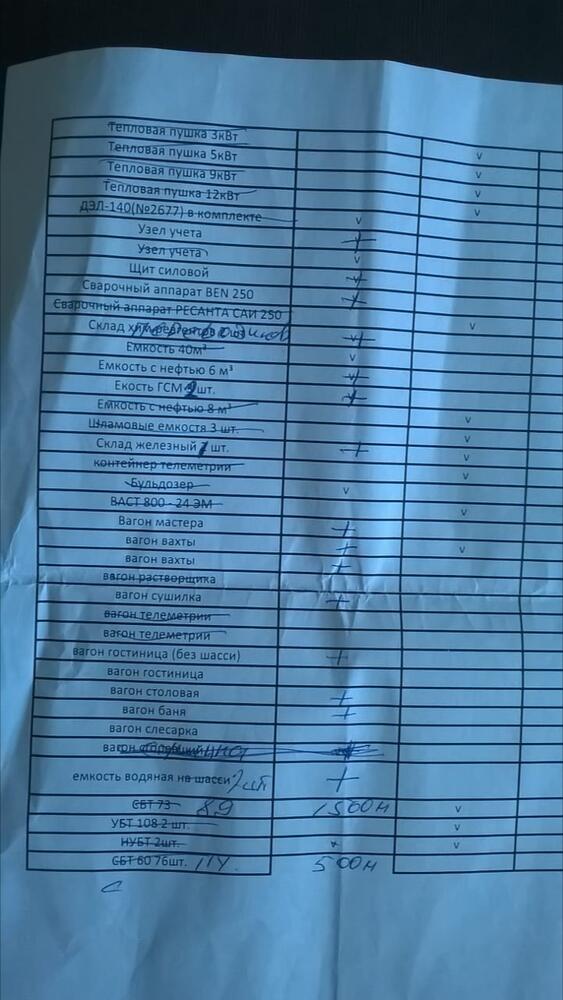 Тепловая пушка 3кВт
Тепловая пушка 5кВт v
Тепловая пушка 9кВт v
Тепловая пушка 12кВт v
ДЭЛ-140(№2677) в комплекте v
Узел учета +
Узел учета v
Щит силовой +
Сварочный аппарат BEN 250 +
Сварочный аппарат РЕСАНТА САИ 250
Склад v v
Емкость 40м³ v
Емкость с нефтью 6 м³ +
Екость ГСМ 2 шт. +
Емкость с нефтью 8 м³
Шламовые емкостя 3 шт. v
Склад железный 1 шт. + v
контейнер телеметрии v
Бульдозер v v
ВАСТ 800 - 24 ЭМ
Вагон мастера + v
вагон вахты +
вагон вахты + v
вагон растворщика
вагон сушилка +
вагон телеметрии
вагон телеметрии
вагон гостиница (без шасси) +
вагон гостиница
вагон столовая +
вагон баня +
вагон слесарка
вагон
емкость водяная на шасси шт +
СБТ 73 89 1500м v
УБТ 108 2 шт. v
НУБТ 2шт. v
СБТ 60 76шт. 114 500м
с